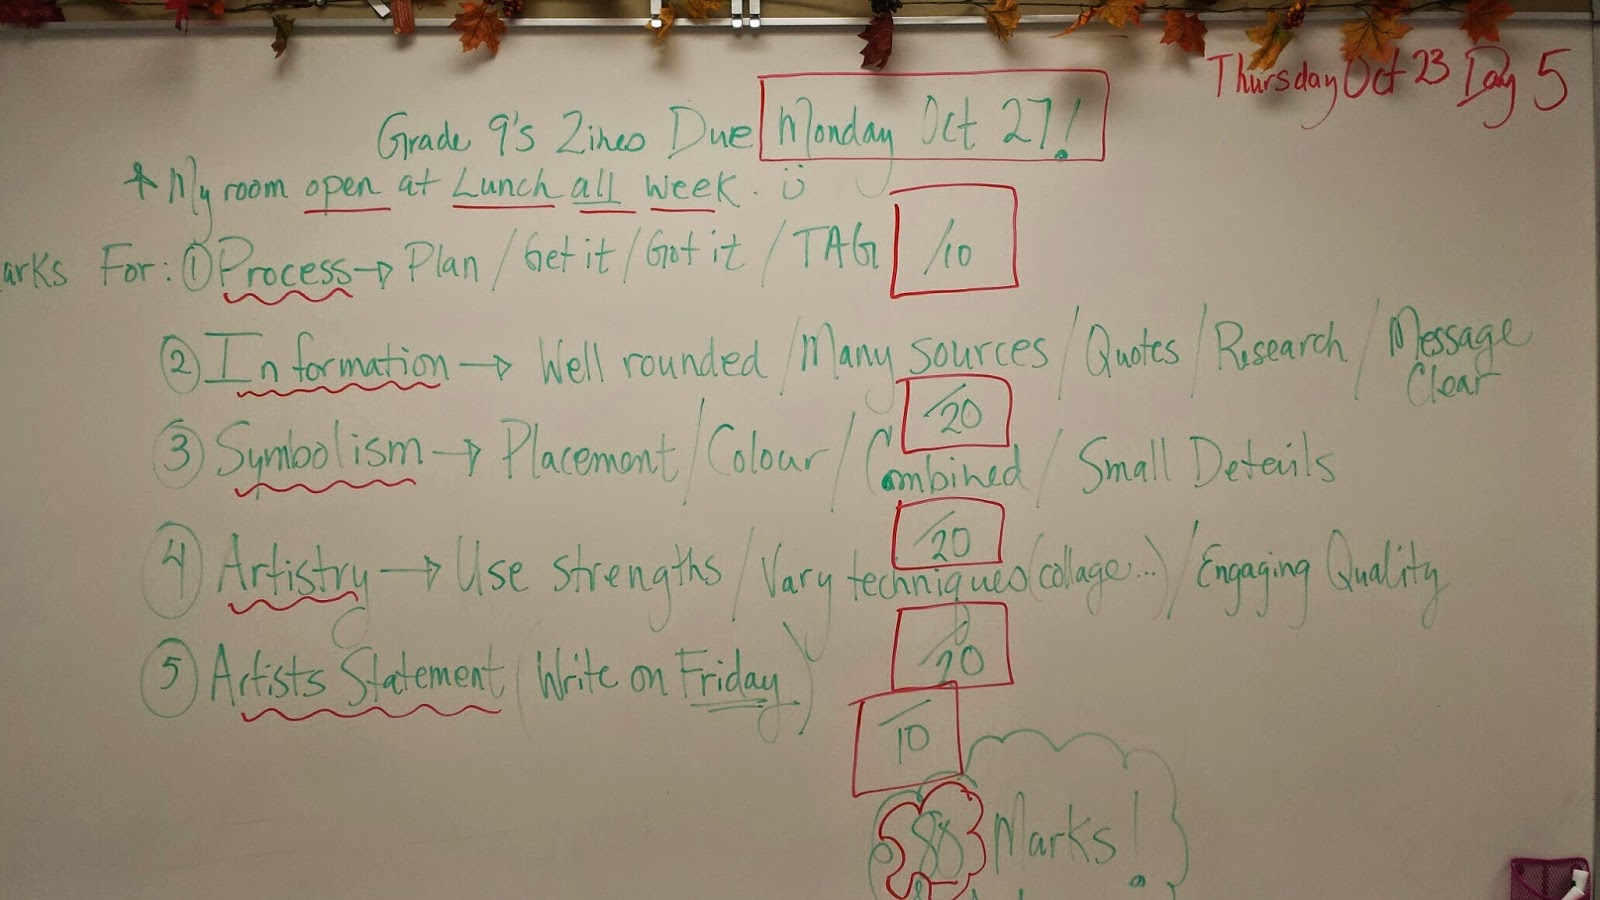 Thursday Oct 23 Day 5
Grade 9's Zines Due Monday Oct 27!
* My room open at Lunch all week.
arks For: ① Process → Plan / Get it / Got it / TAG /10
② Information → Well rounded / Many sources / Quotes / Research / Message Clear
/20
③ Symbolism → Placement / Colour / Combined / Small Details
/20
④ Artistry → Use strengths / Vary techniques (collage...) / Engaging Quality
/20
⑤ Artists Statement (Write on Friday)
/10
Marks!